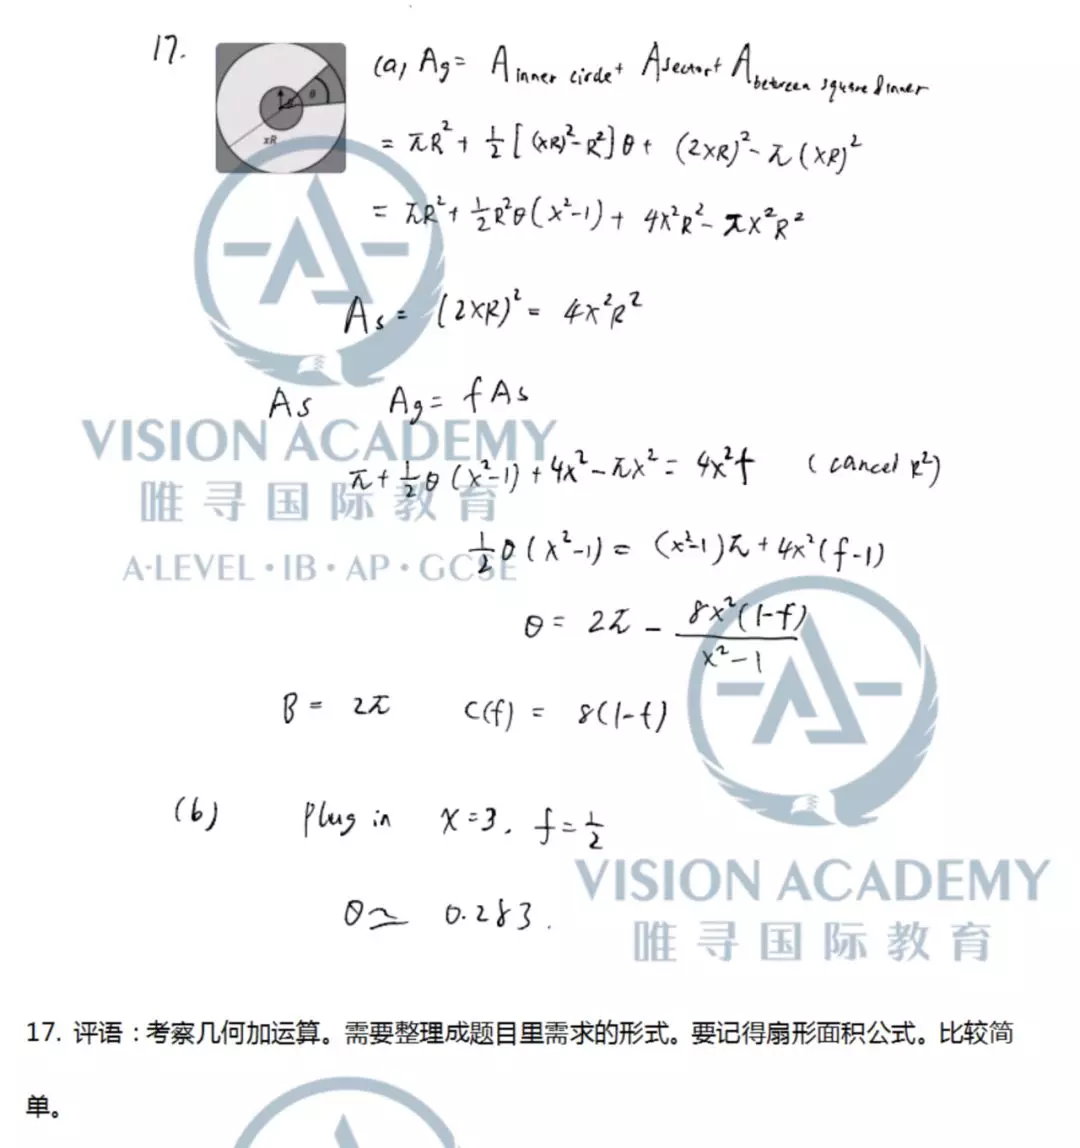 17.
θ
xR
(a) Ag = A inner circle + A sector + A between square & inner
= πR² + ½[(xR)²-R²]θ + (2xR)² - π(xR)²
= πR² + ½R²θ(x²-1) + 4x²R² - πx²R²
As = (2xR)² = 4x²R²
As Ag = fAs
VISION ACADEMY
π + ½θ(x²-1) + 4x² - πx² = 4x²f (cancel R²)
唯寻国际教育
½θ(x²-1) = (x²-1)π + 4x²(f-1)
A-LEVEL·IB·AP·GCSE
θ = 2π - 8x²(1-f)
x²-1
B = 2π C(f) = 8(1-f)
(b) plug in x=3, f=½
VISION ACADEMY
θ≃ 0.283.
唯寻国际教育
17. 评语:考察几何加运算。需要整理成题目里需求的形式。要记得扇形面积公式。比较简
单。